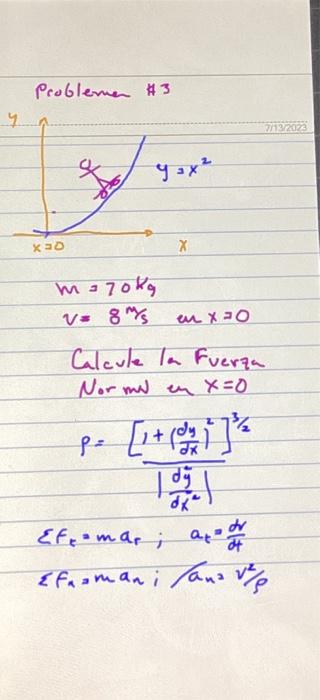 Problema #3
y
7/13/2023
y = x²
x=0
x
m = 70 kg
v = 8 m/s en x=0
Calcule la Fuerza
Normal en x=0
ρ = [1+(dy/dx)²]^3/2 / |d²y/dx²|
ΣFt = mat ; at = dv/dt
ΣFn = man ; an = v²/ρ